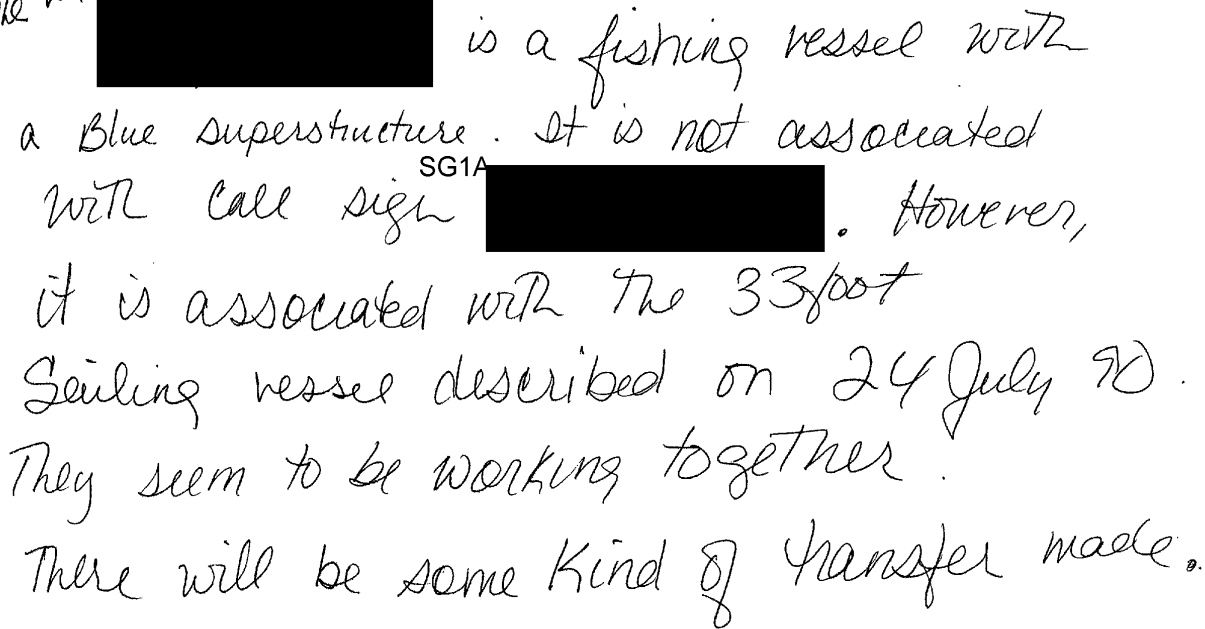 is a fishing vessel with
a Blue superstructure. It is not associated
SG1A
with call sign . However,
it is associated with the 33 foot
Sailing vessel described on 24 July 90.
They seem to be working together.
There will be some kind of transfer made.